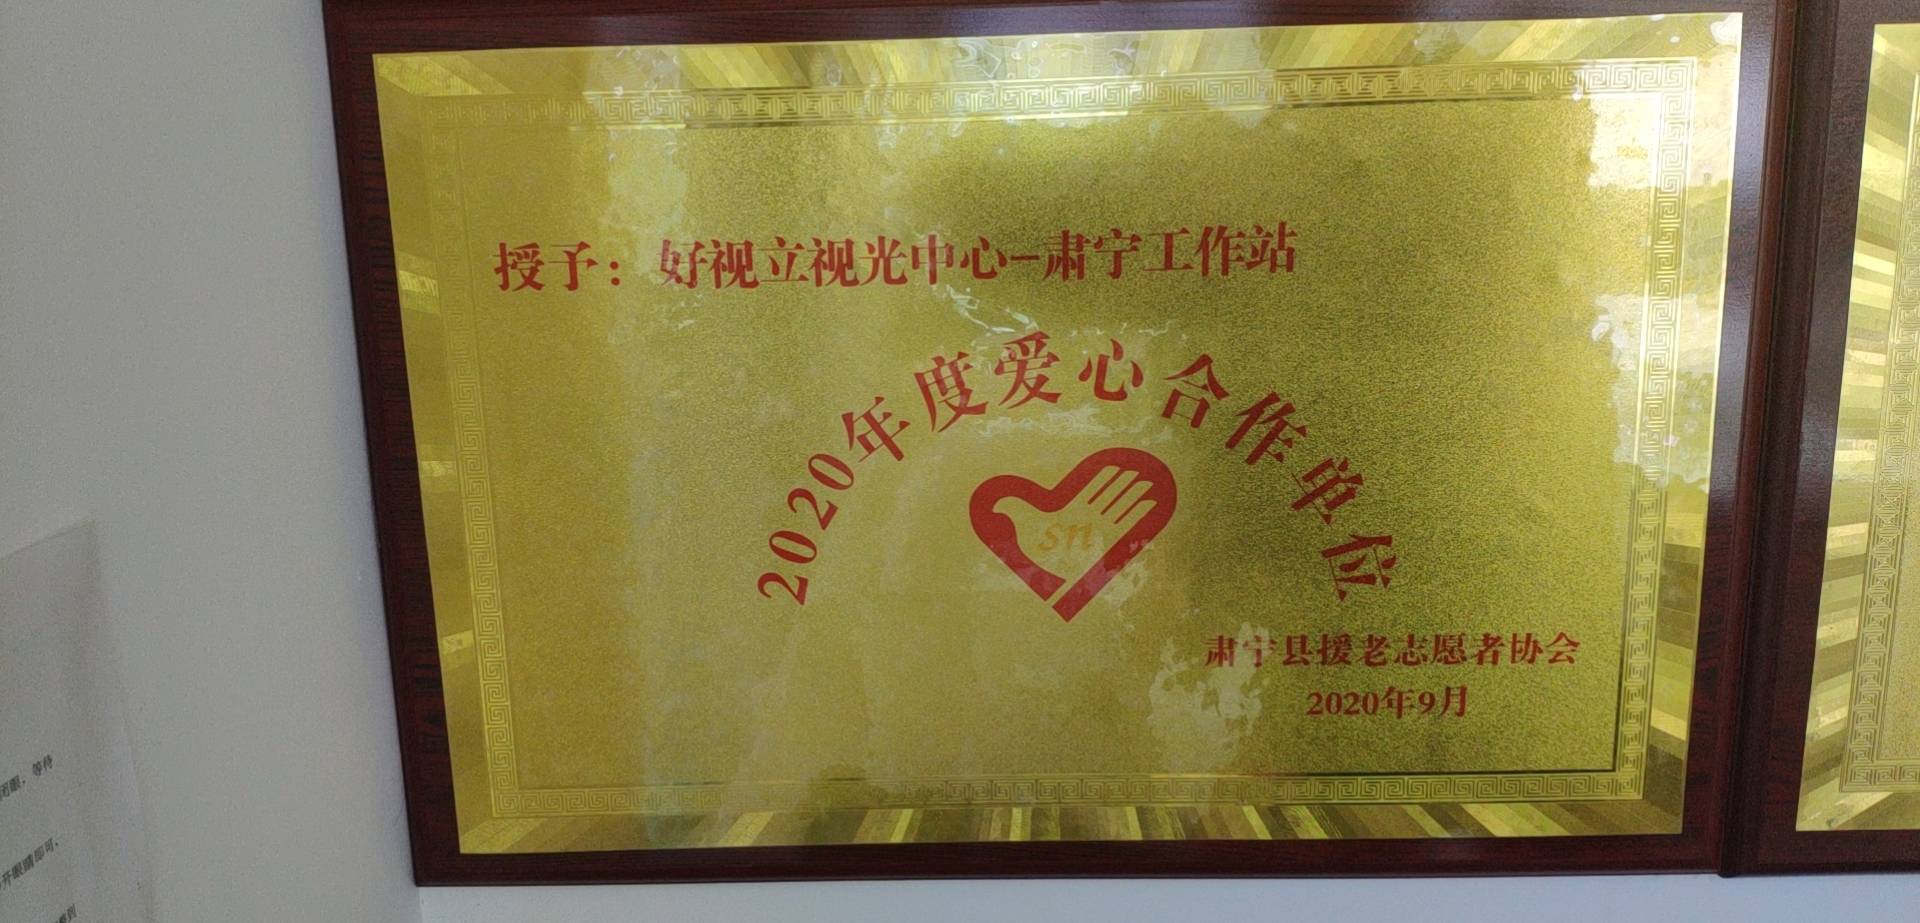 授予：好视立视光中心-肃宁工作站
2020年度爱心合作单位
sn
肃宁县援老志愿者协会
2020年9月
闭眼，等待
开眼睛即可，